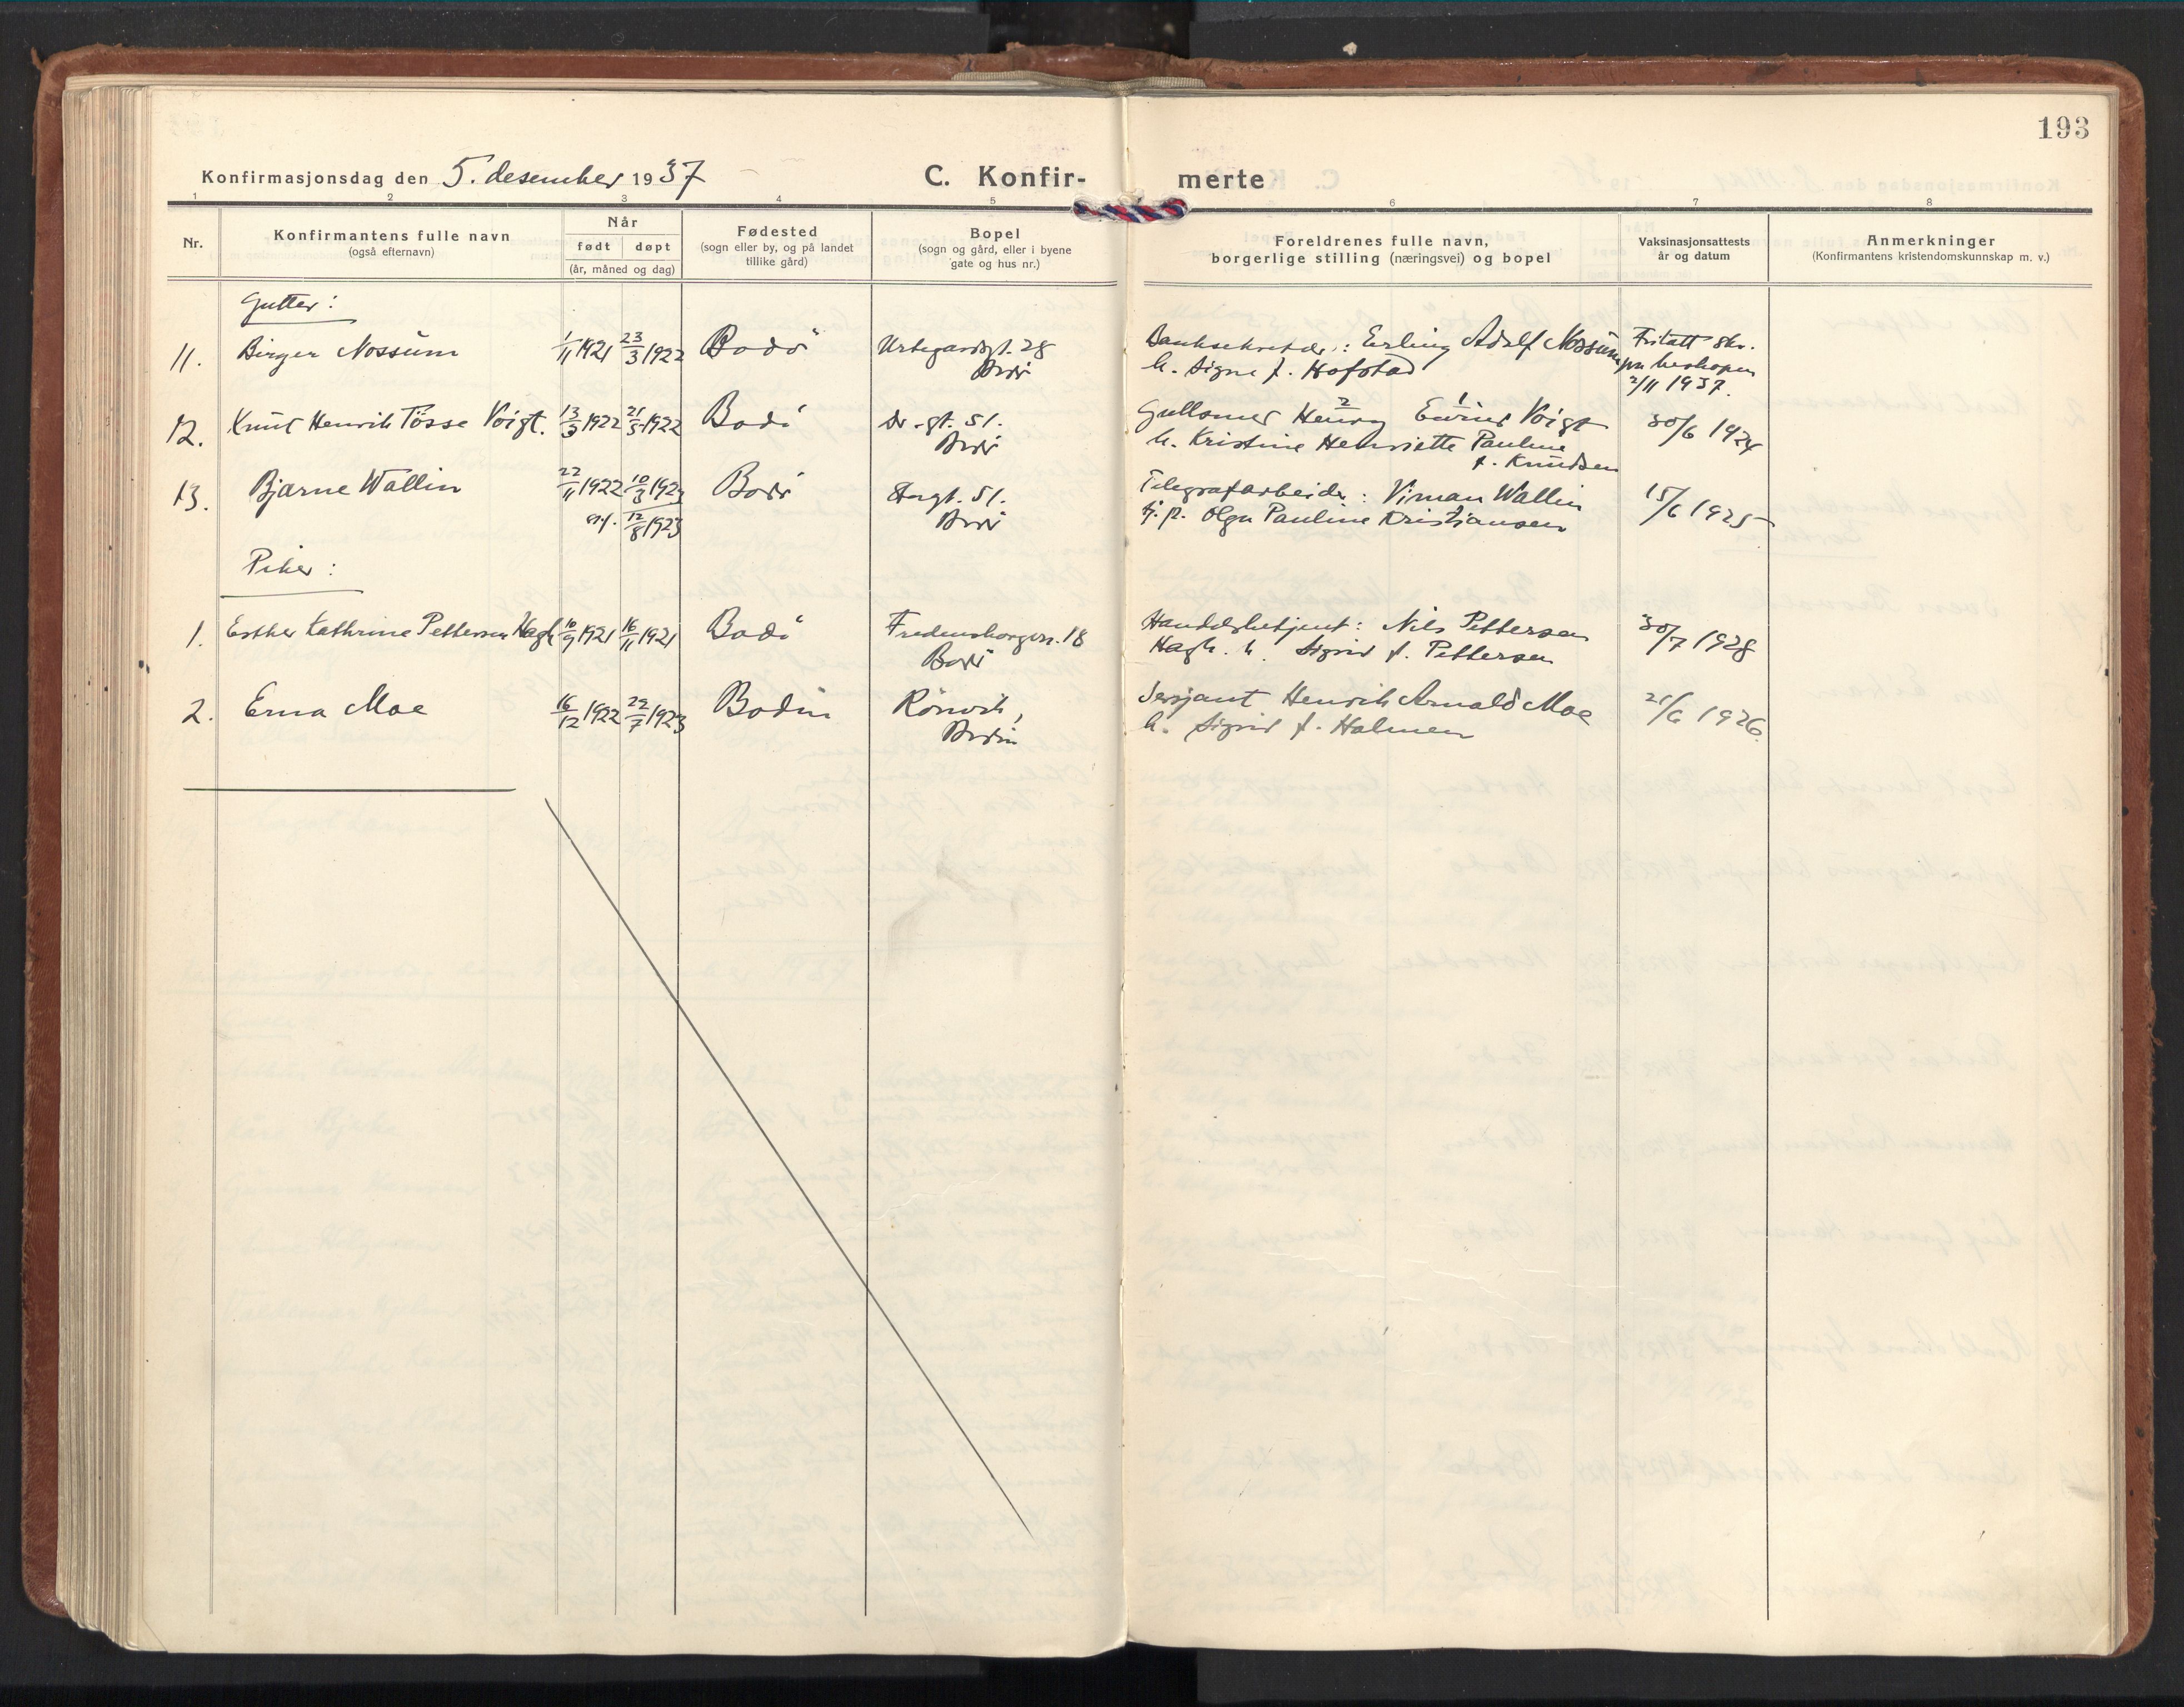 193
Konfirmasjonsdag den 5. desember 1937
C. Konfir- merte
1 2 3 4 5 6 7 8
Nr.
Konfirmantens fulle navn
(også efternavn)
Når
født døpt
(år, måned og dag)
Fødested
(sogn eller by, og på landet
tillike gård)
Bopel
(sogn og gård, eller i byene
gate og hus nr.)
Foreldrenes fulle navn,
borgerlige stilling (næringsvei) og bopel
Vaksinasjonsattests
år og datum
Anmerkninger
(Konfirmantens kristendomskunnskap m. v.)
Gutter:
11. Birger Nossum 1/11 1921 23/3 1922 Bodö
28
Bodö
Banksekretær: Erling Adolf Nossum
h. Signe f. Hofstad
Fritatt skr.
biskopen
2/11 1937.
12. Knut Henrik Tösse Voigt. 13/3 1922 21/5 1922 Bodö
Dr.gt. 51.
Bodö
Gullsmed Henry 2 Eivind 1 Voigt
h. Kristine Henriette Pauline
f. Knudsen
30/6 1924
13. Bjarne Wallin 22/11 1922 10/3 1923 Bodö
12/8 1923
Storgt. 51.
Bodö
Telegrafarbeider: Viman Wallin
Olga Pauline Kristiansen
15/6 1925
Piker:
1. Esther Kathrine Pettersen Hagh 10/9 1921 16/11 1921 Bodö
Fredensborgvn. 18
Bodö
Handelsbetjent: Nils Pettersen
Hagh. h. Sigrid f. Pettersen
30/7 1928
2. Erna Moe 16/12 1922 22/7 1923 Bodin
Rönvik,
Bodin
Sersjant Henrik Arnald Moe
h. Sigrid f. Halmen
21/6 1926.